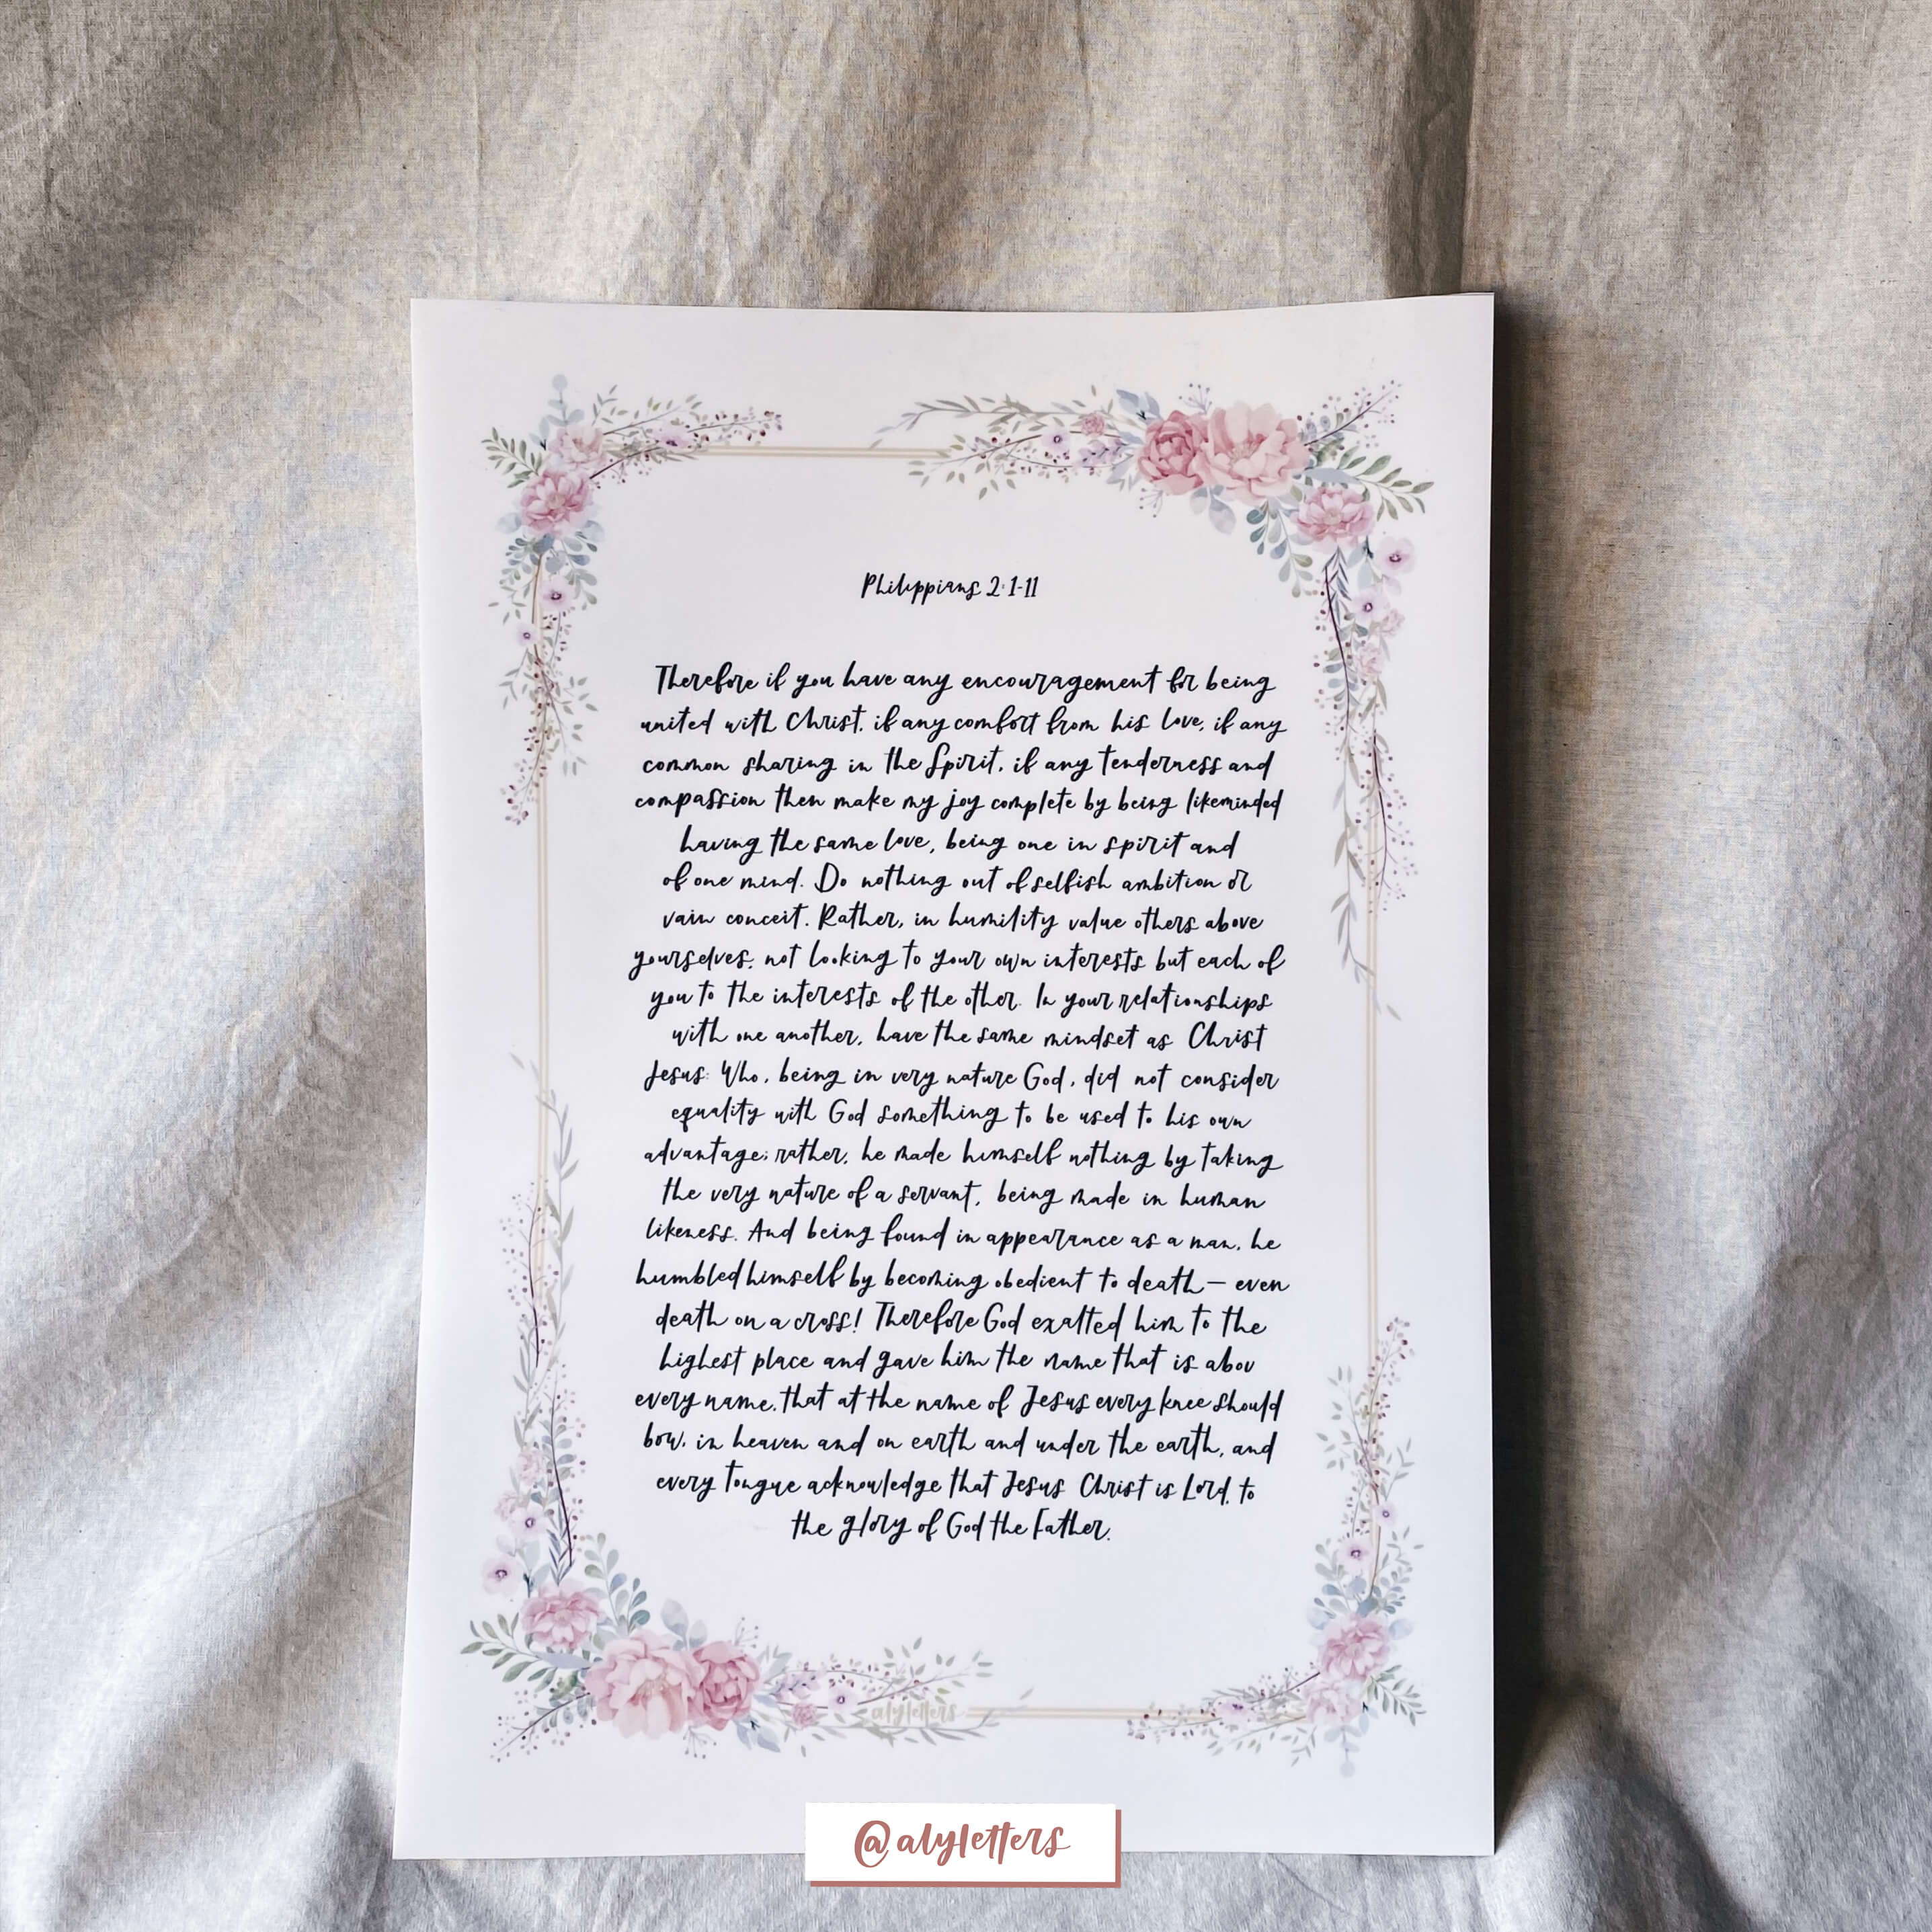 Philippians 2:1-11
Therefore if you have any encouragement for being
united with Christ, if any comfort from his love, if any
common sharing in the Spirit, if any tenderness and
compassion then make my joy complete by being likeminded
having the same love, being one in spirit and
of one mind. Do nothing out of selfish ambition or
vain conceit. Rather, in humility value others above
yourselves, not looking to your own interests but each of
you to the interests of the other. In your relationships
with one another, have the same mindset as Christ
Jesus: Who, being in very nature God, did not consider
equality with God something to be used to his own
advantage; rather, he made himself nothing by taking
the very nature of a servant, being made in human
likeness. And being found in appearance as a man, he
humbled himself by becoming obedient to death— even
death on a cross! Therefore God exalted him to the
highest place and gave him the name that is abov
every name, that at the name of Jesus every knee should
bow, in heaven and on earth and under the earth, and
every tongue acknowledge that Jesus Christ is Lord, to
the glory of God the Father.
alyletters
@alyletters